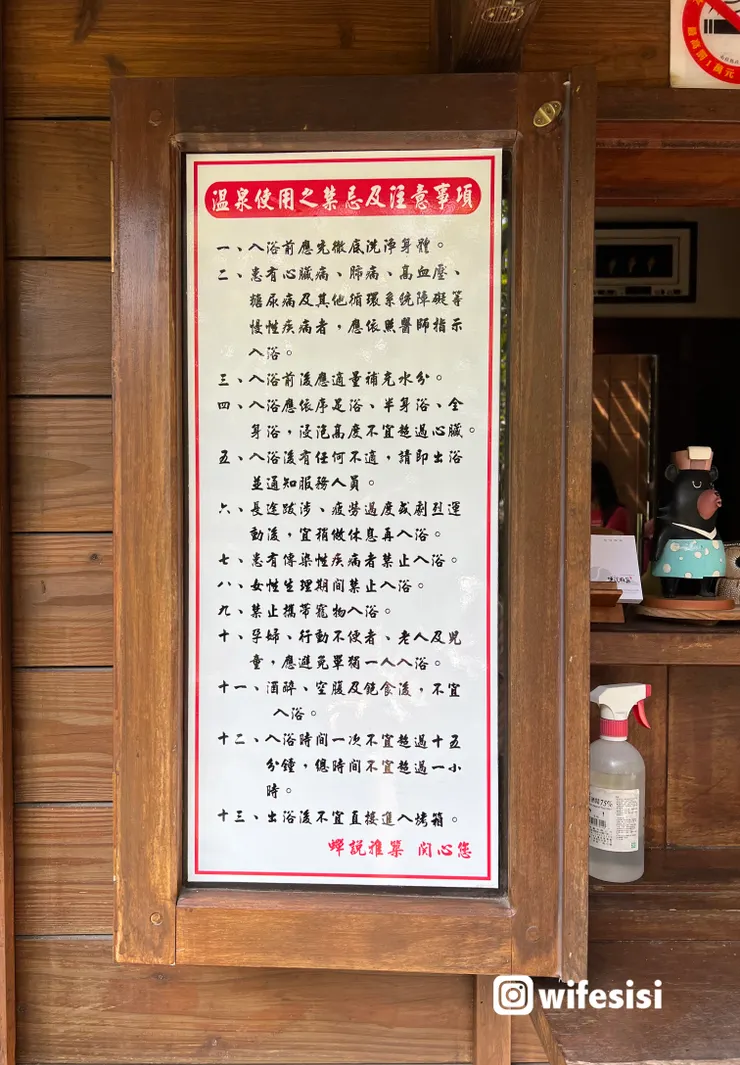 溫泉使用之禁忌及注意事項
一、入浴前應先徹底洗淨身體。
二、患有心臟病、肺病、高血壓、
糖尿病及其他循環系統障礙等
慢性疾病者，應依照醫師指示
入浴。
三、入浴前後應適量補充水分。
四、入浴應依序足浴、半身浴、全
身浴，浸泡高度不宜超過心臟。
五、入浴後有任何不適，請即出浴
並通知服務人員。
六、長途跋涉、疲勞過度或劇烈運
動後，宜稍做休息再入浴。
七、患有傳染性疾病者禁止入浴。
八、女性生理期間禁止入浴。
九、禁止攜帶寵物入浴。
十、孕婦、行動不便者、老人及兒
童，應避免單獨一人入浴。
十一、酒醉、空腹及飽食後，不宜
入浴。
十二、入浴時間一次不宜超過十五
分鐘，總時間不宜超過一小
時。
十三、出浴後不宜直接進入烤箱。
蟬說雅築 関心您
最高罰1萬元
75%
wifesisi